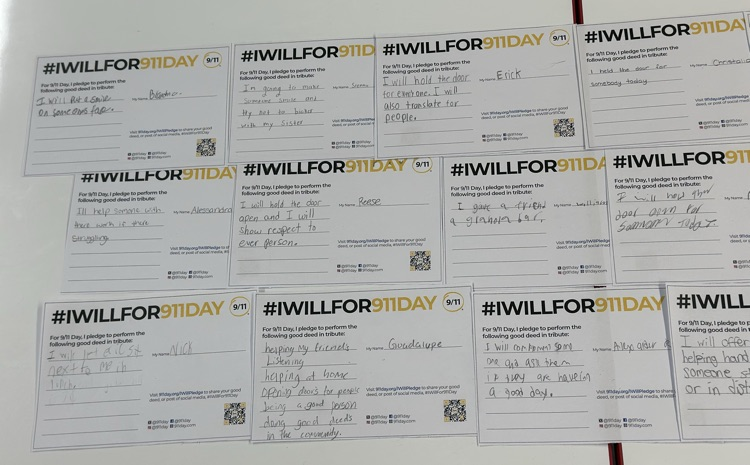 #IWILLFOR911DAY
9/11
For 9/11 Day, I pledge to perform the
following good deed in tribute:
My Name:
I will Put a smile
on someones face.
Visit 911day.org/IWillPledge to share your good
deed, or post of social media, #IWillFor911Day
@911day @911day
@911day 911day.com
#IWILLFOR911D
For 9/11 Day, I pledge to perform the
following good deed in tribute:
My Name:
I'm going to make
someone smile and
try not to
with my sister
Visit 911day.org/IWillPledge
deed, or post of social media
@911day @911day
@911day 911day.com
#IWILLFOR911DAY
9/11
For 9/11 Day, I pledge to perform the
following good deed in tribute:
My Name: Erick
I will hold the door
for everyone. I will
also translate for
people.
Visit 911day.org/IWillPledge to share your good
deed, or post of social media, #IWillFor911Day
@911day @911day
@911day 911day.com
#IWILLFOR911DAY
For 9/11 Day, I pledge to perform the
following good deed in tribute:
My Name:
I hold the door for
somebody today
Visit 911day.org/IWillPledge to share
deed, or post of social media, #IWillFor
@911day @911day
@911day 911day.com
#IWILLFOR911DAY
For 9/11 Day, I pledge to perform the
following good deed in tribute:
My Name: Alessandra
I'll help somone with
there work is there
struggling.
Visit 911day.org/IWillPledge
deed, or post of social
@911day @911day
@911day 911day.com
#IWILLFOR911DAY
9/11
For 9/11 Day, I pledge to perform the
following good deed in tribute:
My Name: Reese
I will hold the door
open and I will
show respect to
ever person.
Visit 911day.org/IWillPledge to share your good
deed, or post of social media, #IWillFor911Day
@911day @911day
@911day 911day.com
#IWILLFOR911DA
For 9/11 Day, I pledge to perform the
following good deed in tribute:
My Name:
I gave a friend
a granola bar,
Visit 911day.org/IWillPledge
deed, or post of social media
@911day @911day
@911day 911day.com
#IWILLFOR911
For 9/11 Day, I pledge to perform the
following good deed in tribute:
I will hold the
door open for
Visit 911day.org
deed, or post of
@911day @911day
@911day 911day.com
#IWILLFOR911DAY
9/11
For 9/11 Day, I pledge to perform the
following good deed in tribute:
My Name: Nich
I will
next to
Visit 911day.org/IWillPledge to share your good
deed, or post of social media, #IWillFor911Day
@911day @911day
@911day 911day.com
#IWILLFOR911DAY
9/11
For 9/11 Day, I pledge to perform the
following good deed in tribute:
My Name: Guadalupe
helping My friends
Listening
helping at home
opening doors for people
being a good person
doing good deeds
in the community.
Visit 911day.org/IWillPledge to share your good
deed, or post of social media, #IWillFor911Day
@911day @911day
@911day 911day.com
#IWILLFOR911DAY
For 9/11 Day, I pledge to perform the
following good deed in tribute:
My Name:
I will compliment some
one and ask them
if they are havein
a good day.
Visit 911day.org/IWillPledge to share
deed, or post of social media, #IWillFor
@911day @911day
@911day 911day.com
#IWILL
For 9/11 Day, I pledge
following good deed in
I will offer
helping hand
someone
or in